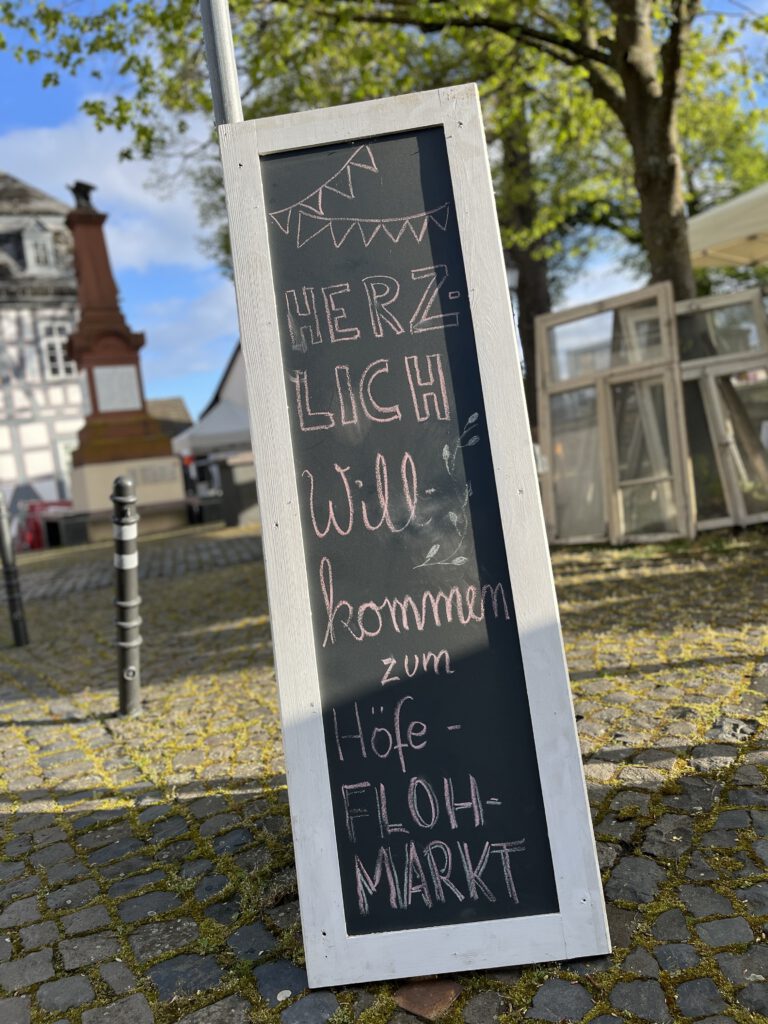 HERZ-
LICH
Will-
kommen
zum
Höfe-
FLOH-
MARKT